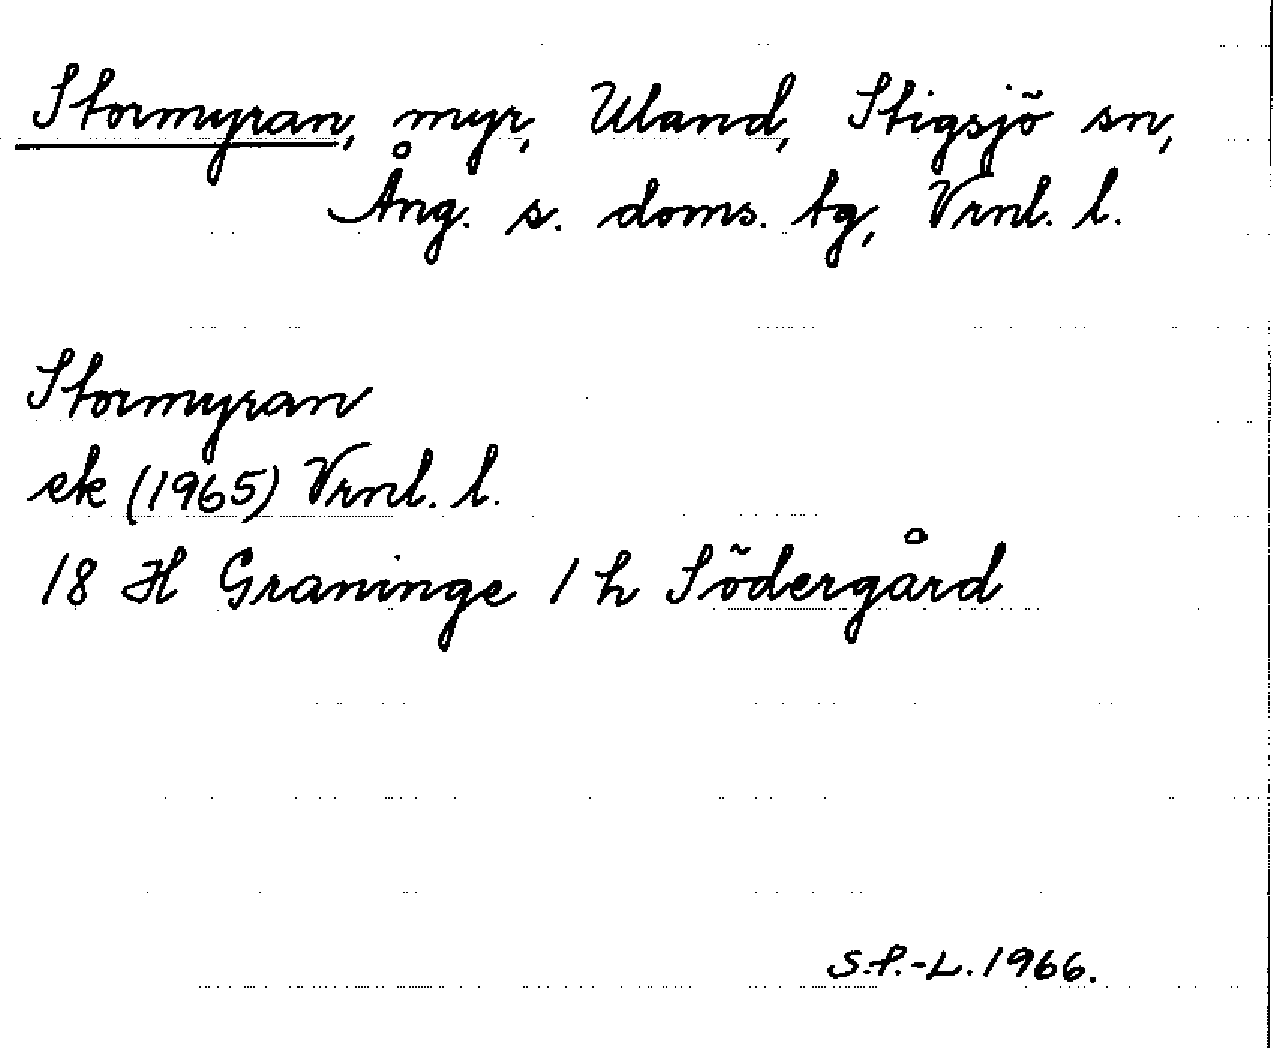 Stormyran, myr, Uland, Stigsjö sn,
Ång. s. doms. tg, Vrnl. l.
Stormyran
ek (1965) Vrnl. l.
18 H Graninge 1 h Södergård
S.P.-L. 1966.